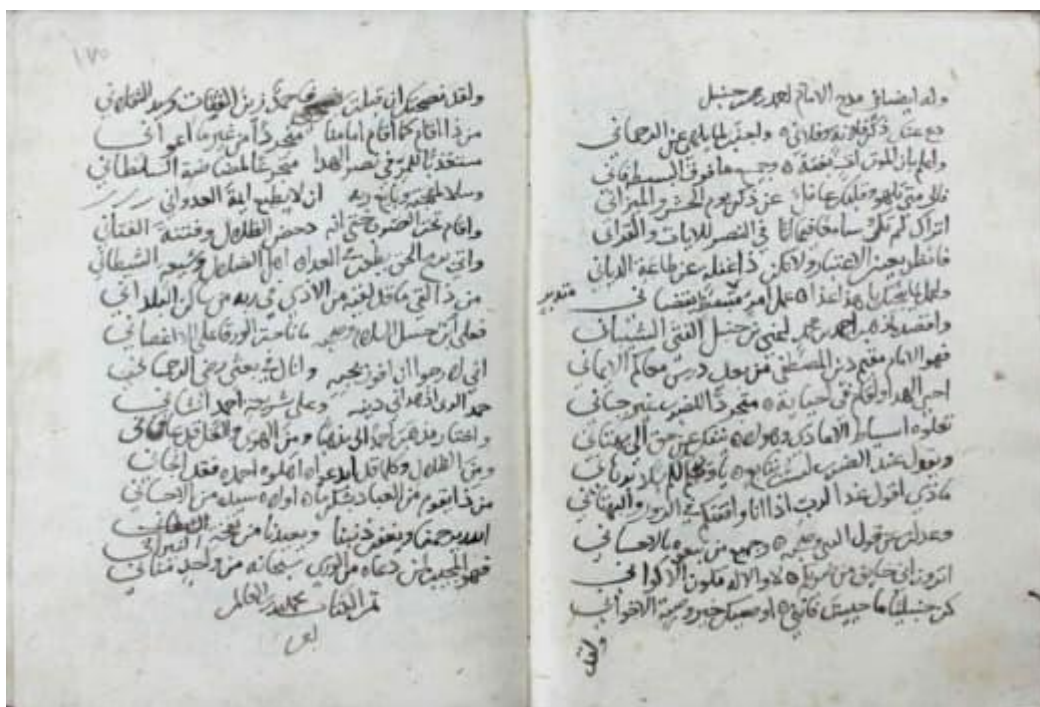 وله ايضا في مدح الامام احمد بن حنبل
دع عنك ذكر فلانة وفلاني واجنب لما يلهي عن الرحماني
واعلم بان الموت ياتي بغتة وجميع ما فوق البسيطة فاني
فالى متى تلهو وقلبك غافل عن ذكر يوم الحشر والميزاني
اتراك لم تكن سامعا ما اتا في النص للايات والقراني
فانظر بعين الاعتبار ولا تكن ذا غفلة عن طاعة الدياني
متدبر
واقصد لمذهب احمد بن محمد اعني بن حنبل الفتى الشيباني
فهو الامام مقيم دين المصطفى من بعد درس معالم الايماني
احيى الهدا واقام في احيايه متجردا للضرب غير جباني
تعلوه اسياط الاعادي وهو لا ينفك عن حق الى بهتاني
ويقول عند الضرب لست بتابع يا ويحكم لكم بلا برهاني
ماذي اقول غدا لربي اذا انا وافقتكم في الزور والبهتاني
وعدلت عن قول النبي وصحبه وجميع من تبعوه بالاحساني
اترون اني خايف من ضربكم لا والاله ملون الالواني
كن حنبليا ما حييت فانني اوصيك خير وصية الاخواني
ولقد
١٧٥
ولقد نصحتك ان قبلت فاحمد زين الثقات وسيد الفتياني
من ذا اقام كما اقام امامنا متجردا من غير ما اعواني
مستعذبا للمر في نصر الهدا متجرعا لمضاضة السلطاني
وسلا بمهجته وبايع ربه ان لا يطيع ايمة العدواني
واقام تحت الضرب حتى انه دحض الضلال وفتنة الفتاني
واتى برمح الحق يطعن في العدا اهل الضلال وشيعة الشيطاني
من ذا لقي ما قد لقيه من الاذى في ربه من ساكن البلداني
فعلى ابن حنبل السلام وصحبه ما ناحت الورقا على الاغصاني
اني لارجوا ان افوز بحبه وانال في بعثي رضى الرحماني
حمدا لربي اذ هداني دينه وعلى شريعة احمد انشاني
واختار مذهب احمد لي مذهبا ومن الهوى والغي قد عافاني
من ذا يقوم من العباد بشكر ما اولاه سيده من الاحساني
الله يرحمنا ويغفر ذنبنا ويعيذنا من نفحة النيراني
فهو المجيب لمن دعاه من الورى سبحانه من واحد مناني
تم